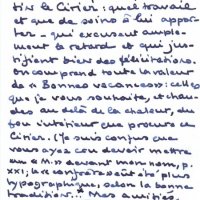 tir le Cirier : quel travail
et que de soins à lui appor-
ter - qui excusent ample-
ment le retard et qui jus-
tifient bien des félicitations.
On comprend toute la valeur
de « Bonnes vacances » : celles
que je vous souhaite, et chau-
des au delà de la chaleur, du
feu intérieur que procure ce
Cirier. (Je suis confus que
vous ayez cru devoir mettre
un « M. » devant mon nom, p.
XXI ; le contraire eût été plus
typographique, selon la bonne
tradition... Mes amitiés.